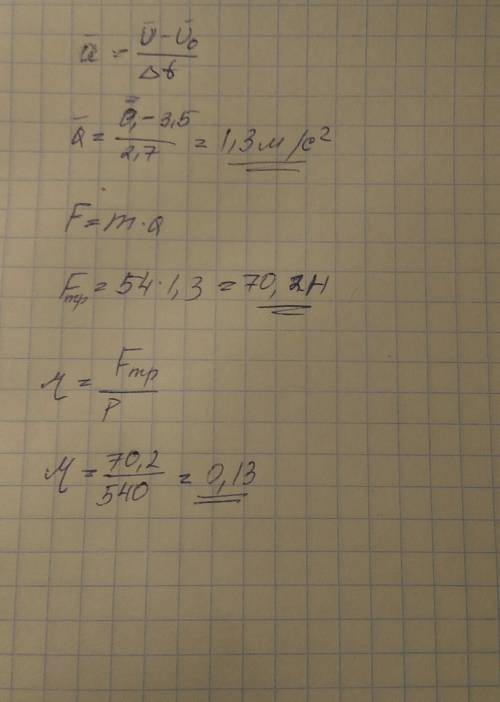 ā = (v̄ - v̄₀) / Δt
ā = (0,-3,5) / 2,7 = 1,3 м/с²
F = m·a
Fтр = 54·1,3 = 70,2Н
μ = Fтр / P
μ = 70,2 / 540 = 0,13